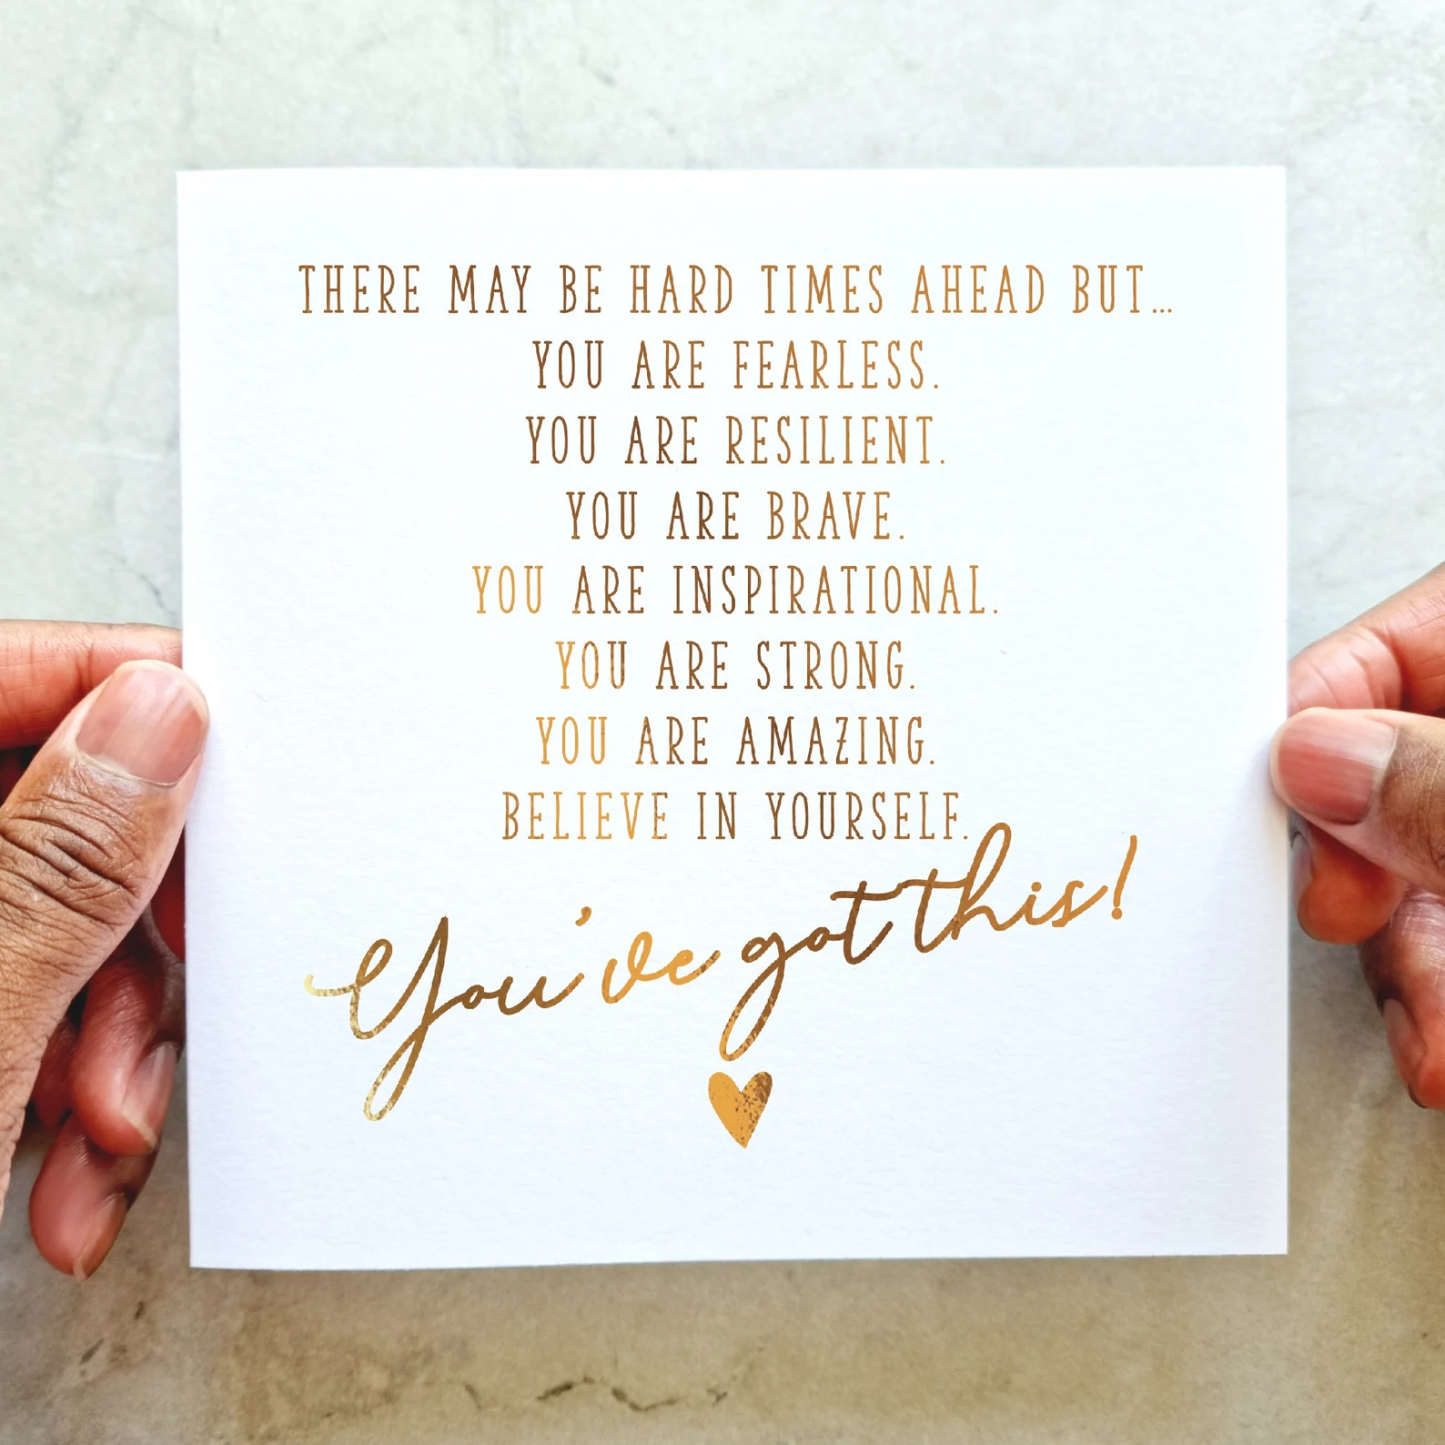 THERE MAY BE HARD TIMES AHEAD BUT...
YOU ARE FEARLESS.
YOU ARE RESILIENT.
YOU ARE BRAVE.
YOU ARE INSPIRATIONAL.
YOU ARE STRONG.
YOU ARE AMAZING.
BELIEVE IN YOURSELF.
You've got this!